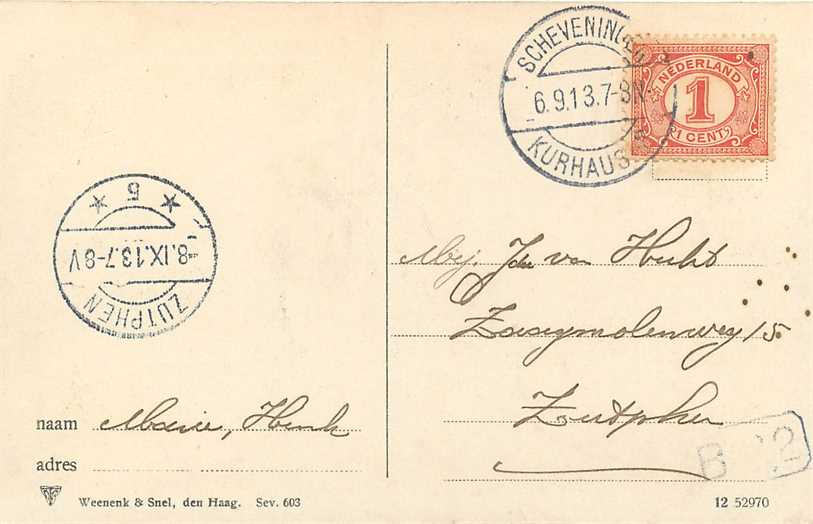 SCHEVENINGEN
6.9.13.7-8N
KURHAUS
NEDERLAND
1
1 CENT
5
8.IX.13.7-8V
ZUTPHEN
Mej. van
Zaagmolenweg 15.
Zutphen
naam Marie, Henk
adres
Weenenk & Snel, den Haag. Sev. 603
12 52970
B 2